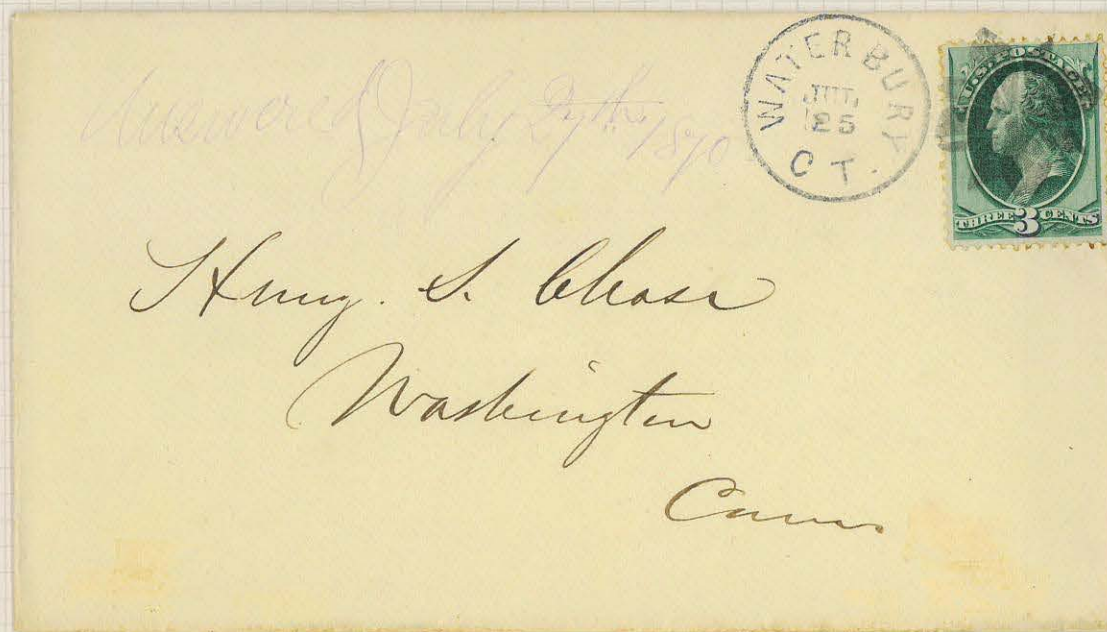 Answered July 27th 1870
WATERBURY
JUL
25
CT.
U.S. POSTAGE
THREE 3 CENTS
Henry. S. Chase
Washington
Conn